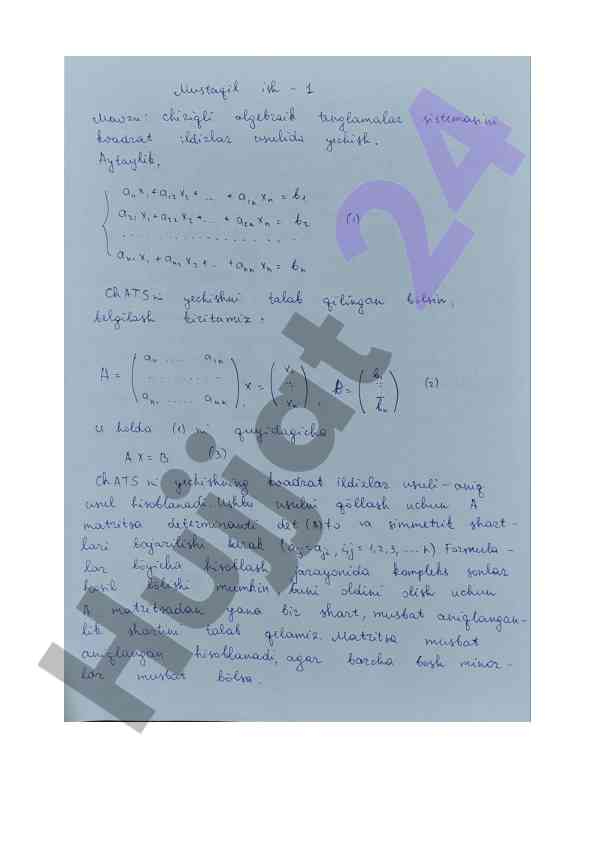 Mustaqil ish - 1
Mavzu: chiziqli algebraik tenglamalar sistemasini
kvadrat ildizlar usulida yechish.
Aytaylik,
a₁₁x₁ + a₁₂x₂ + ... + a₁ₙxₙ = b₁
a₂₁x₁ + a₂₂x₂ + ... + a₂ₙxₙ = b₂ (1)
. . . . . . . . . . . . . . . .
aₙ₁x₁ + aₙ₂x₂ + ... + aₙₙxₙ = bₙ
ChATS ni yechishni talab qilingan bo'lsin,
belgilash kiritamiz.
A = ( a₁₁ .... a₁ₙ ........ aₙ₁ .... aₙₙ ), x = ( x₁ : xₙ ), B = ( b₁ : bₙ ) (2)
u holda (1) ni quyidagicha
A x = B (3)
ChATS ni yechishning kvadrat ildizlar usuli - aniq
usul hisoblanadi. Ushbu usulni qo'llash uchun A
matritsa determinanti det ≠ 0 va simmetrik shart-
lari bajarilishi kerak (i,j = 1,2,3, .... n) Formula-
lar bo'yicha hisoblash jarayonida kompleks sonlar
hosil bo'lishi mumkin, buni oldini olish uchun
A matritsadan yana bir shart, musbat aniqlangan-
lik shartini talab qilamiz. Matritsa musbat
aniqlangan hisoblanadi, agar barcha bosh minor-
lar musbat bo'lsa.
Hujjat 24